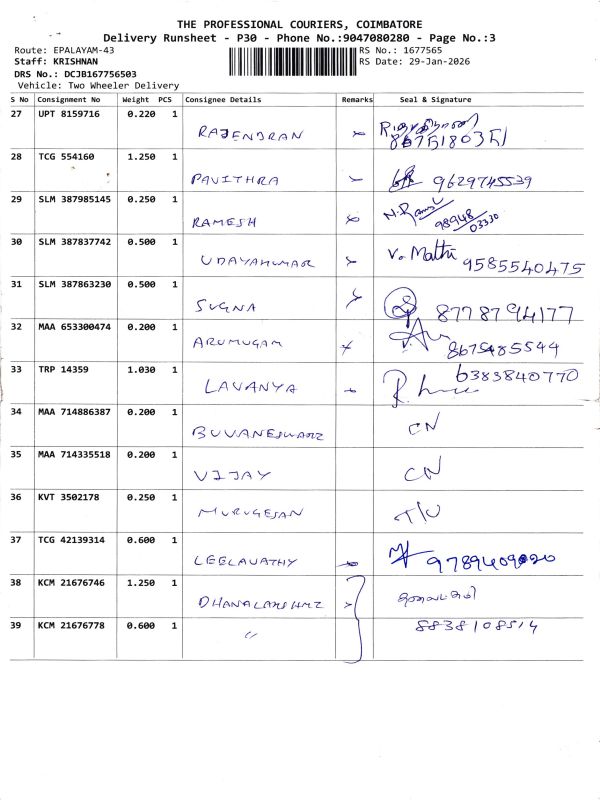 THE PROFESSIONAL COURIERS, COIMBATORE
Delivery Runsheet - P30 - Phone No.:9047080280 - Page No.:3
Route: EPALAYAM-43 RS No.: 1677565
Staff: KRISHNAN RS Date: 29-Jan-2026
DRS No.: DCJB167756503
Vehicle: Two Wheeler Delivery
S No Consignment No Weight PCS Consignee Details Remarks Seal & Signature
27 UPT 8159716 0.220 1
RAJENDRAN
28 TCG 554160 1.250 1
PAVITHRA 9629745539
29 SLM 387985145 0.250 1
RAMESH N. Ramu 98948 03330
30 SLM 387837742 0.500 1 V. Mathi
UDAYAKUMAR 9585540475
31 SLM 387863230 0.500 1
SUGNA 8778794177
32 MAA 653300474 0.200 1
ARUMUGAM 8675485544
33 TRP 14359 1.030 1 6383840770
LAVANYA
34 MAA 714886387 0.200 1 CN
BUVANESWARI
35 MAA 714335518 0.200 1
VIJAY CN
36 KVT 3502178 0.250 1
MURUGESAN T/U
37 TCG 42139314 0.600 1
LEELAVATHY
38 KCM 21676746 1.250 1
DHANALAKSHMI
39 KCM 21676778 0.600 1 8838108514
〃